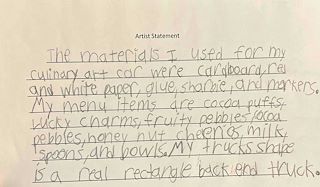 Artist Statement
The materials I used for my
culinary art car were cardboard, red
and white paper, glue, sharpie, and markers.
My menu items are cocoa puffs,
lucky charms, fruity pebbles, cocoa
pebbles, honey nut cheerios, milk,
spoons, and bowls. My trucks shape
is a real rectangle back end truck.